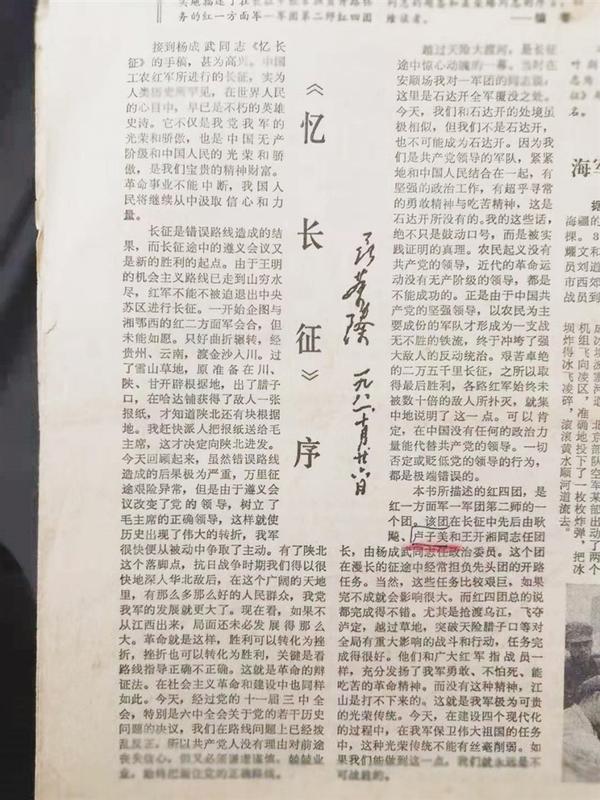 务的红一方面军一军团第二师红四团
维读者。
接到杨成武同志《忆长
征》的手稿,甚为高兴。中国
工农红军所进行的长征,实为
人类历史所罕见,在世界人民
的心目中,早已是不朽的英雄
史诗。它不仅是我党我军的
光荣和骄傲,也是中国无产
阶级和中国人民的光荣和骄
傲,是我们宝贵的精神财富。
革命事业不能中断,我国人
民将继续从中汲取信心和力
量。
长征是错误路线造成的结
果,而长征途中的遵义会议又
是新的胜利的起点。由于王明
的机会主义路线已走到山穷水
尽,红军不能不被迫退出中央
苏区进行长征。一开始企图与
湘鄂西的红二方面军会合,但
未能如愿。只好曲折辗转,经
贵州、云南,渡金沙入川。过
了雪山草地,原准备在川、
陕、甘开辟根据地,出了腊子
口,在哈达铺获得了敌人一张
报纸,才知道陕北还有块根据
地。我赶快派人把报纸送给毛
主席,这才决定向陕北进发。
今天回顾起来,虽然错误路线
造成的后果极为严重,万里征
途艰险异常,但是由于遵义会
议改变了党的领导,树立了
毛主席的正确领导,这样就使
历史出现了伟大的转折,我军
很快便从被动中争取了主动。有了陕北
这个落脚点,抗日战争时期我们得以很
快地深入华北敌后,在这个广阔的天地
里,有那么多那么好的人民群众,我党
我军的发展就更大了。现在看,如果不
从江西出来,局面还未必发展得那么
大。革命就是这样,胜利可以转化为挫
折,挫折也可以转化为胜利,关键是看
路线指导正确不正确。这就是革命的辩
证法。在社会主义革命和建设中也同样
如此。今天,经过党的十一届三中全
会,特别是六中全会关于党的若干历史
问题的决议,我们在路线问题上已经拨
乱反正。所以共产党人没有理由对前途
丧失信心。但又必须谦虚谨慎、兢兢业
业,始终把握住党的正确路线。
《忆长征》序
聂荣臻
一九八一十月廿六日
越过天险大渡河,是长征
途中惊心动魄的一幕。当时在
安顺场我对一军团的同志说:
这里是石达开全军覆没之处。
今天,我们和石达开的处境虽
极相似,但我们不是石达开,
也不可能成为石达开。因为我
们是共产党领导的军队,紧紧
地和中国人民结合在一起,有
坚强的政治工作,有超乎寻常
的勇敢精神与吃苦精神,这是
石达开所没有的。我的这些话,
绝不只是鼓动口号,而是被实
践证明的真理。农民起义没有
共产党的领导,近代的革命运
动没有无产阶级的领导,都是
不能成功的。正是由于中国共
产党的坚强领导,以农民为主
要成份的军队才形成为一支战
无不胜的铁流,终于冲垮了强
大敌人的反动统治。艰苦卓绝
的二万五千里长征,之所以取
得最后胜利,各路红军始终未
被数十倍的敌人所扑灭,就集
中地说明了这一点。可以肯
定,在中国没有任何的政治力
量能代替共产党的领导。一切
否定或贬低党的领导的行为,
都是极端错误的。
本书所描述的红四团,是
红一方面军一军团第二师的一
个团。该团在长征中先后由耿
飚、卢子美和王开湘同志任团
长,由杨成武同志任政治委员。这个团
在漫长的征途中经常担负先头团的开路
任务。当然,这些任务比较艰巨,如果
完不成就会影响很大。而红四团总的说
都完成得不错。尤其是抢渡乌江,飞夺
泸定,越过草地,突破天险腊子口等对
全局有重大影响的战斗和行动,任务完
成得很好。他们和广大红军指战员一
样,充分发扬了我军勇敢、不怕死、能
吃苦的革命精神。而没有这种精神,江
山是打不下来的。这就是我军极为可贵
的光荣传统。今天,在建设四个现代化
的过程中,在我军保卫伟大祖国的任务
中,这种光荣传统不能有丝毫削弱。如
果我们能做到这一点,我们就永远是不
可战胜的。
海军
海疆的
棵。3
耀文和
员刘道
市西郊
战员到